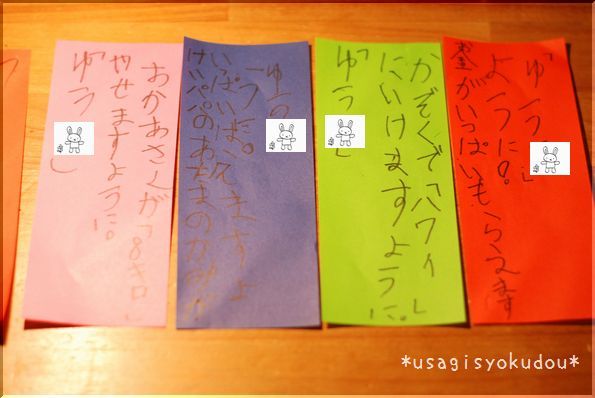 お金がいっぱいもらえます
ように。
「ゆう」
かぞくで「ハワイ」
にいけますように。
「ゆう」
けいパパのあたまのかみが
いっぱいはえますよ
うに。
「ゆう
おかあさんが「8キロ」
やせますように。
「ゆう」
*usagisyokudou*